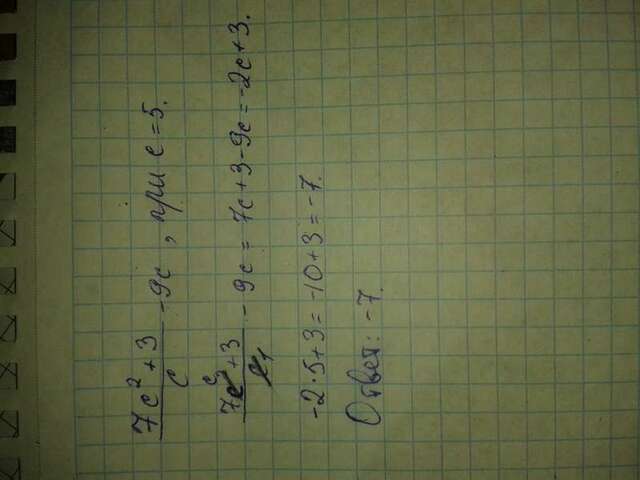 (7c² + 3)/c - 9c, при c = 5.
(7c² + 3)/c - 9c = 7c + 3 - 9c = -2c + 3.
-2·5+3 = -10+3 = -7.
Ответ: -7.